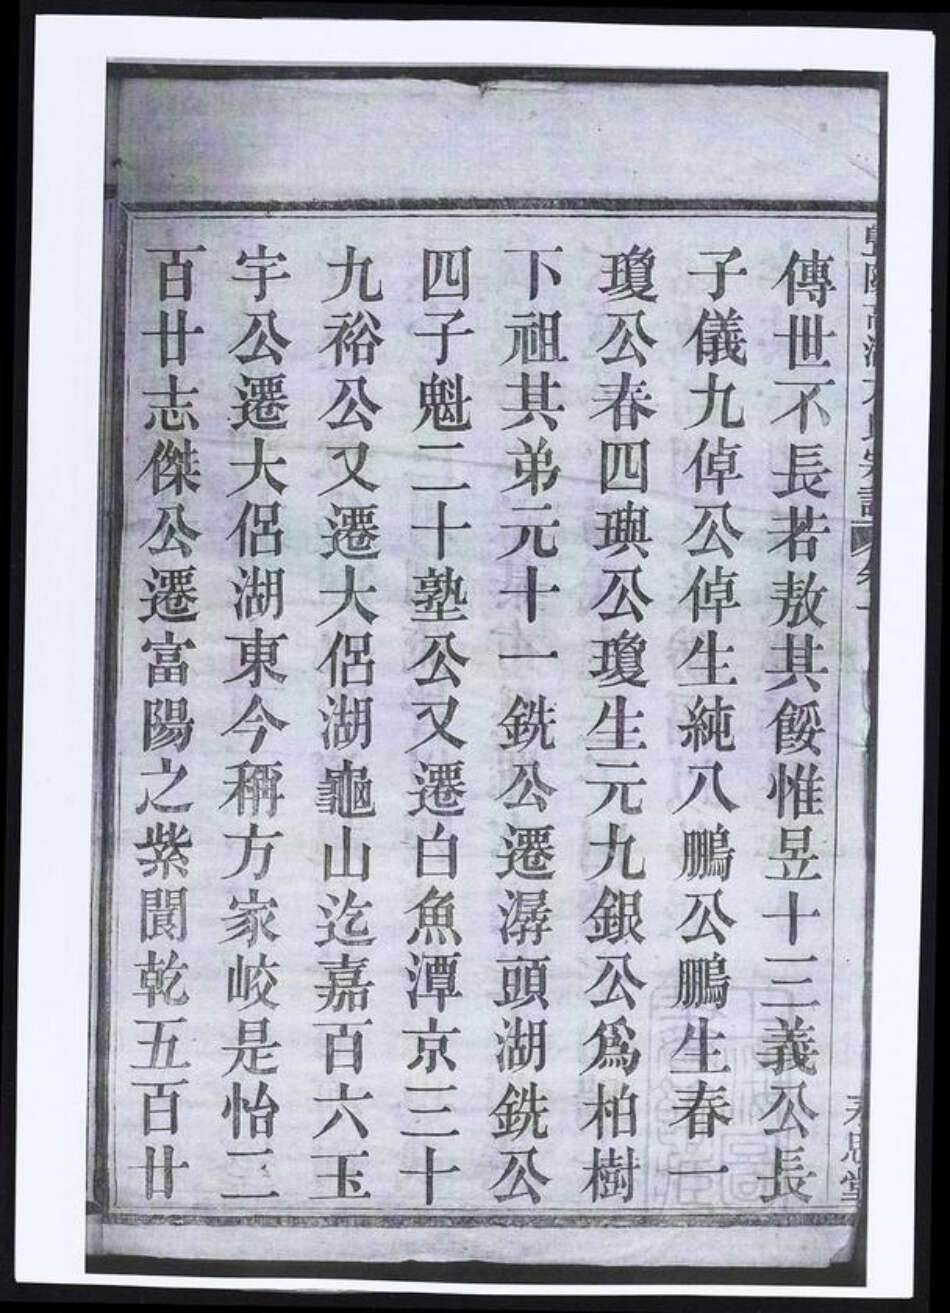 傳世不長若敖其餒惟昱十三義公長
子儀九倬公倬生純八鵬公鵬生春一
瓊公春四琠公瓊生元九銀公爲柏樹
下祖其弟元十一銑公遷潺頭湖銑公
四子魁二十塾公又遷白魚潭京三十
九裕公又遷大侶湖龜山迄嘉百六玉
宇公遷大侶湖東今稱方家峧是怡三
百廿志傑公遷富陽之紫閬乾五百廿